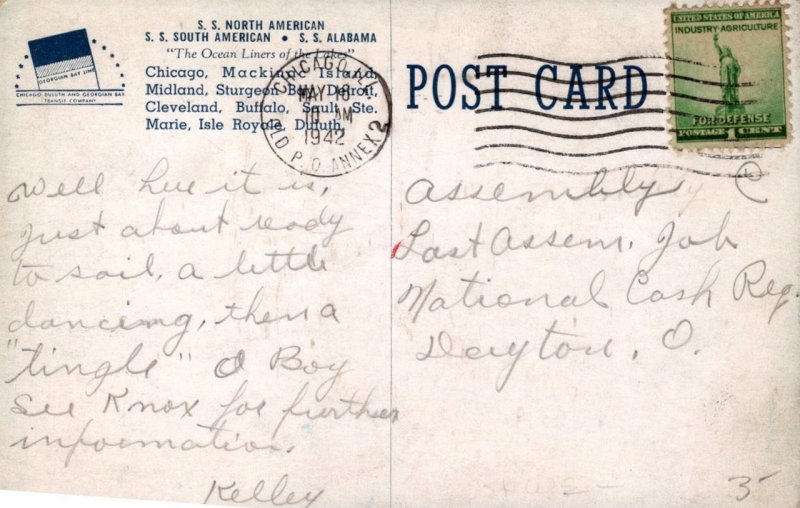 S. S. NORTH AMERICAN
S. S. SOUTH AMERICAN • S. S. ALABAMA
"The Ocean Liners of the Lakes"
Chicago, Mackinac Island,
Midland, Sturgeon Bay, Detroit,
Cleveland, Buffalo, Sault Ste.
Marie, Isle Royale, Duluth.
GEORGIAN BAY LINE
CHICAGO, DULUTH AND GEORGIAN BAY
TRANSIT COMPANY
CHICAGO, ILL.
MAY 16
10 AM
1942
OLD P.O. ANNEX 2
POST CARD
UNITED STATES OF AMERICA
INDUSTRY-AGRICULTURE
FOR DEFENSE
POSTAGE 1 CENT
Well here it is,
just about ready
to sail, a little
dancing, then a
"tingle" O Boy
See Knox for further
information.
Kelley
Assembly
Last Assem. Job
National Cash Reg.
Dayton, O.
3